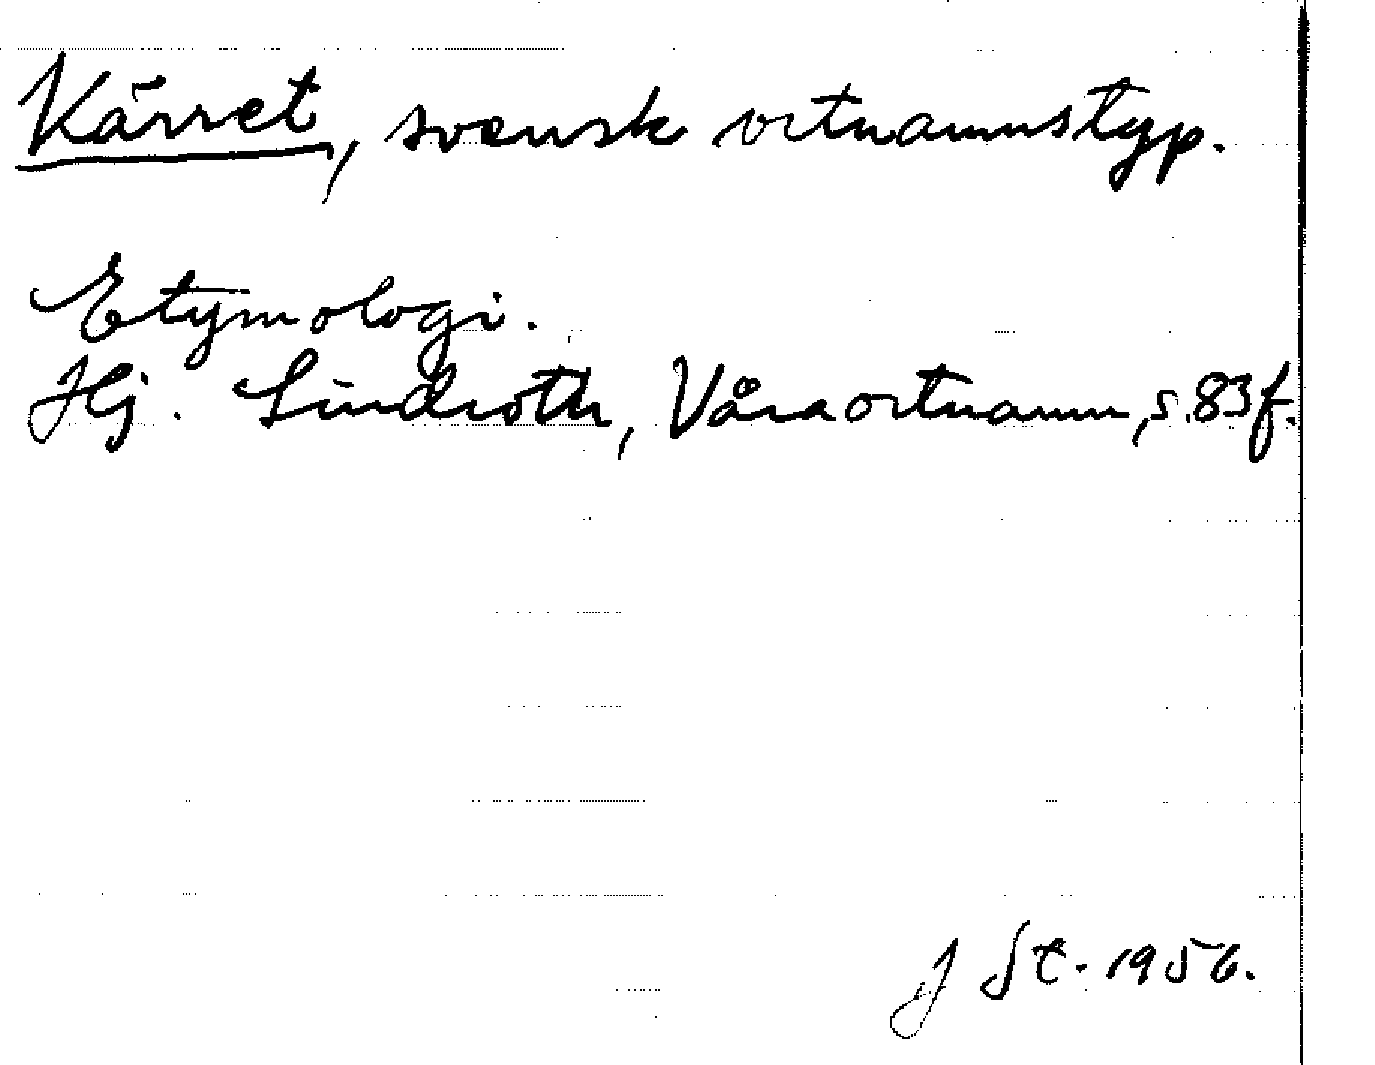 Kärret, svensk ortnamnstyp.
Etymologi.
Hj. Lindroth, Våra ortnamn, s. 83f.
J St. 1956.